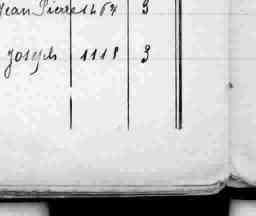 Jean Pierre 1467 3
Joseph 1118 3